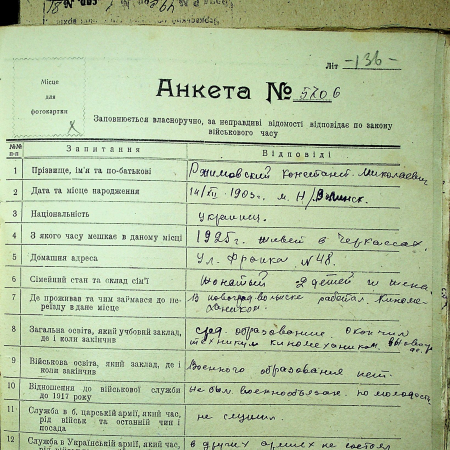 Літ -136-
Місце
для
фотокартки
Анкета № 5706
Заповнюється власноручно, за неправдиві відомості відповідає по закону
військового часу
№№ п-п Запитання Відповіді
1 Прізвище, ім'я та по-батькові Римовский Констант. Николаевич
2 Дата та місце народження 14/XII 1903 г. м. Н/Волинск.
3 Національність украинец.
4 З якого часу мешкає в даному місці 1925 г. живет в Черкассах.
5 Домашня адреса Ул. Франка №48.
6 Сімейний стан та склад сім'ї женатый 2 детей и жена.
7 Де проживав та чим займався до пе- В работал. Киноме-
реїзду в дане місце хаником.
8 Загальна освіта, який учбовий заклад, де сред. образование. Окончил
і коли закінчив техникум киномехаником
9 Військова освіта, який заклад, де і Военного образования нет.
коли закінчив
10 Відношення до військової служби не был военнообязан. по молодости
до 1917 року
11 Служба в б. царській армії, який час, не служил
рід військ та останній чин і
посада
12 Служба в Українській армії, який час, в других армиях не состоял